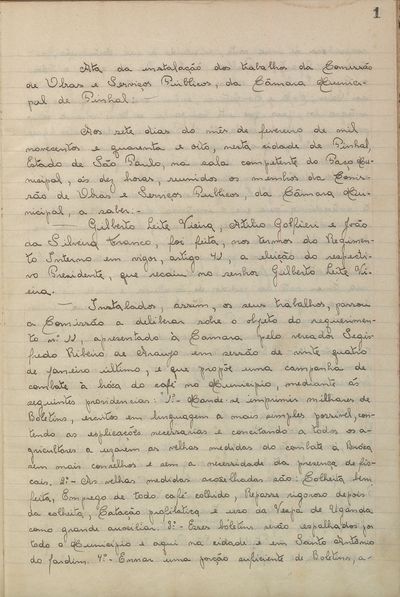 1
Ata da instalação dos trabalhos da Comissão
de Obras e Serviços Publicos, da Câmara Munici-
pal de Pinhal: -
Aos sete dias do mês de fevereiro de mil
novecentos e quarenta e oito, nesta cidade de Pinhal,
Estado de São Paulo, na sala competente do Paço Mu-
nicipal, ás dez horas, reunidos os membros da Comis-
são de Obras e Serviços Publicos, da Câmara Mu-
nicipal, a saber: -
— Gilberto Leite Vieira, Atilio Golfieri e João
da Silveira Franco, foi feita, nos termos do Regimen-
to Interno em vigor, artigo 42, a eleição do respecti-
vo Presidente, que recaiu no senhor Gilberto Leite Vi-
eira.
— Instalados, assim, os seus trabalhos, passou
a Comissão a deliberar sobre o objeto do requerimen-
to nº 11, apresentado á Câmara pelo vereador Segis-
fredo Ribeiro de Araujo em sessão de vinte quatro
de janeiro último, e que propõe uma campanha de
combate à broca do café no Municipio, mediante ás
seguintes providencias: 1º- Mande-se imprimir milhares de
Boletins, escritos em linguagem a mais simples possivel, con-
tendo as explicações necessarias e concitando a todos os a-
gricultores a usarem as velhas medidas do combate a Broca,
sem mais conselhos e sem a necessidade da presença de fis-
cais. 2º- As velhas medidas aconselhadas são: Colheita bem
feita, Emprego de todo café colhido, Repasse rigoroso depois
da colheita, Catação profilatica e uso da Vespa de Uganda
como grande auxiliar. 3º- Esses boletins serão espalhados por
todo o Municipio e aqui na cidade e em Santo Antônio
do Jardim. 4º- Enviar uma porção suficiente de Boletins, a-